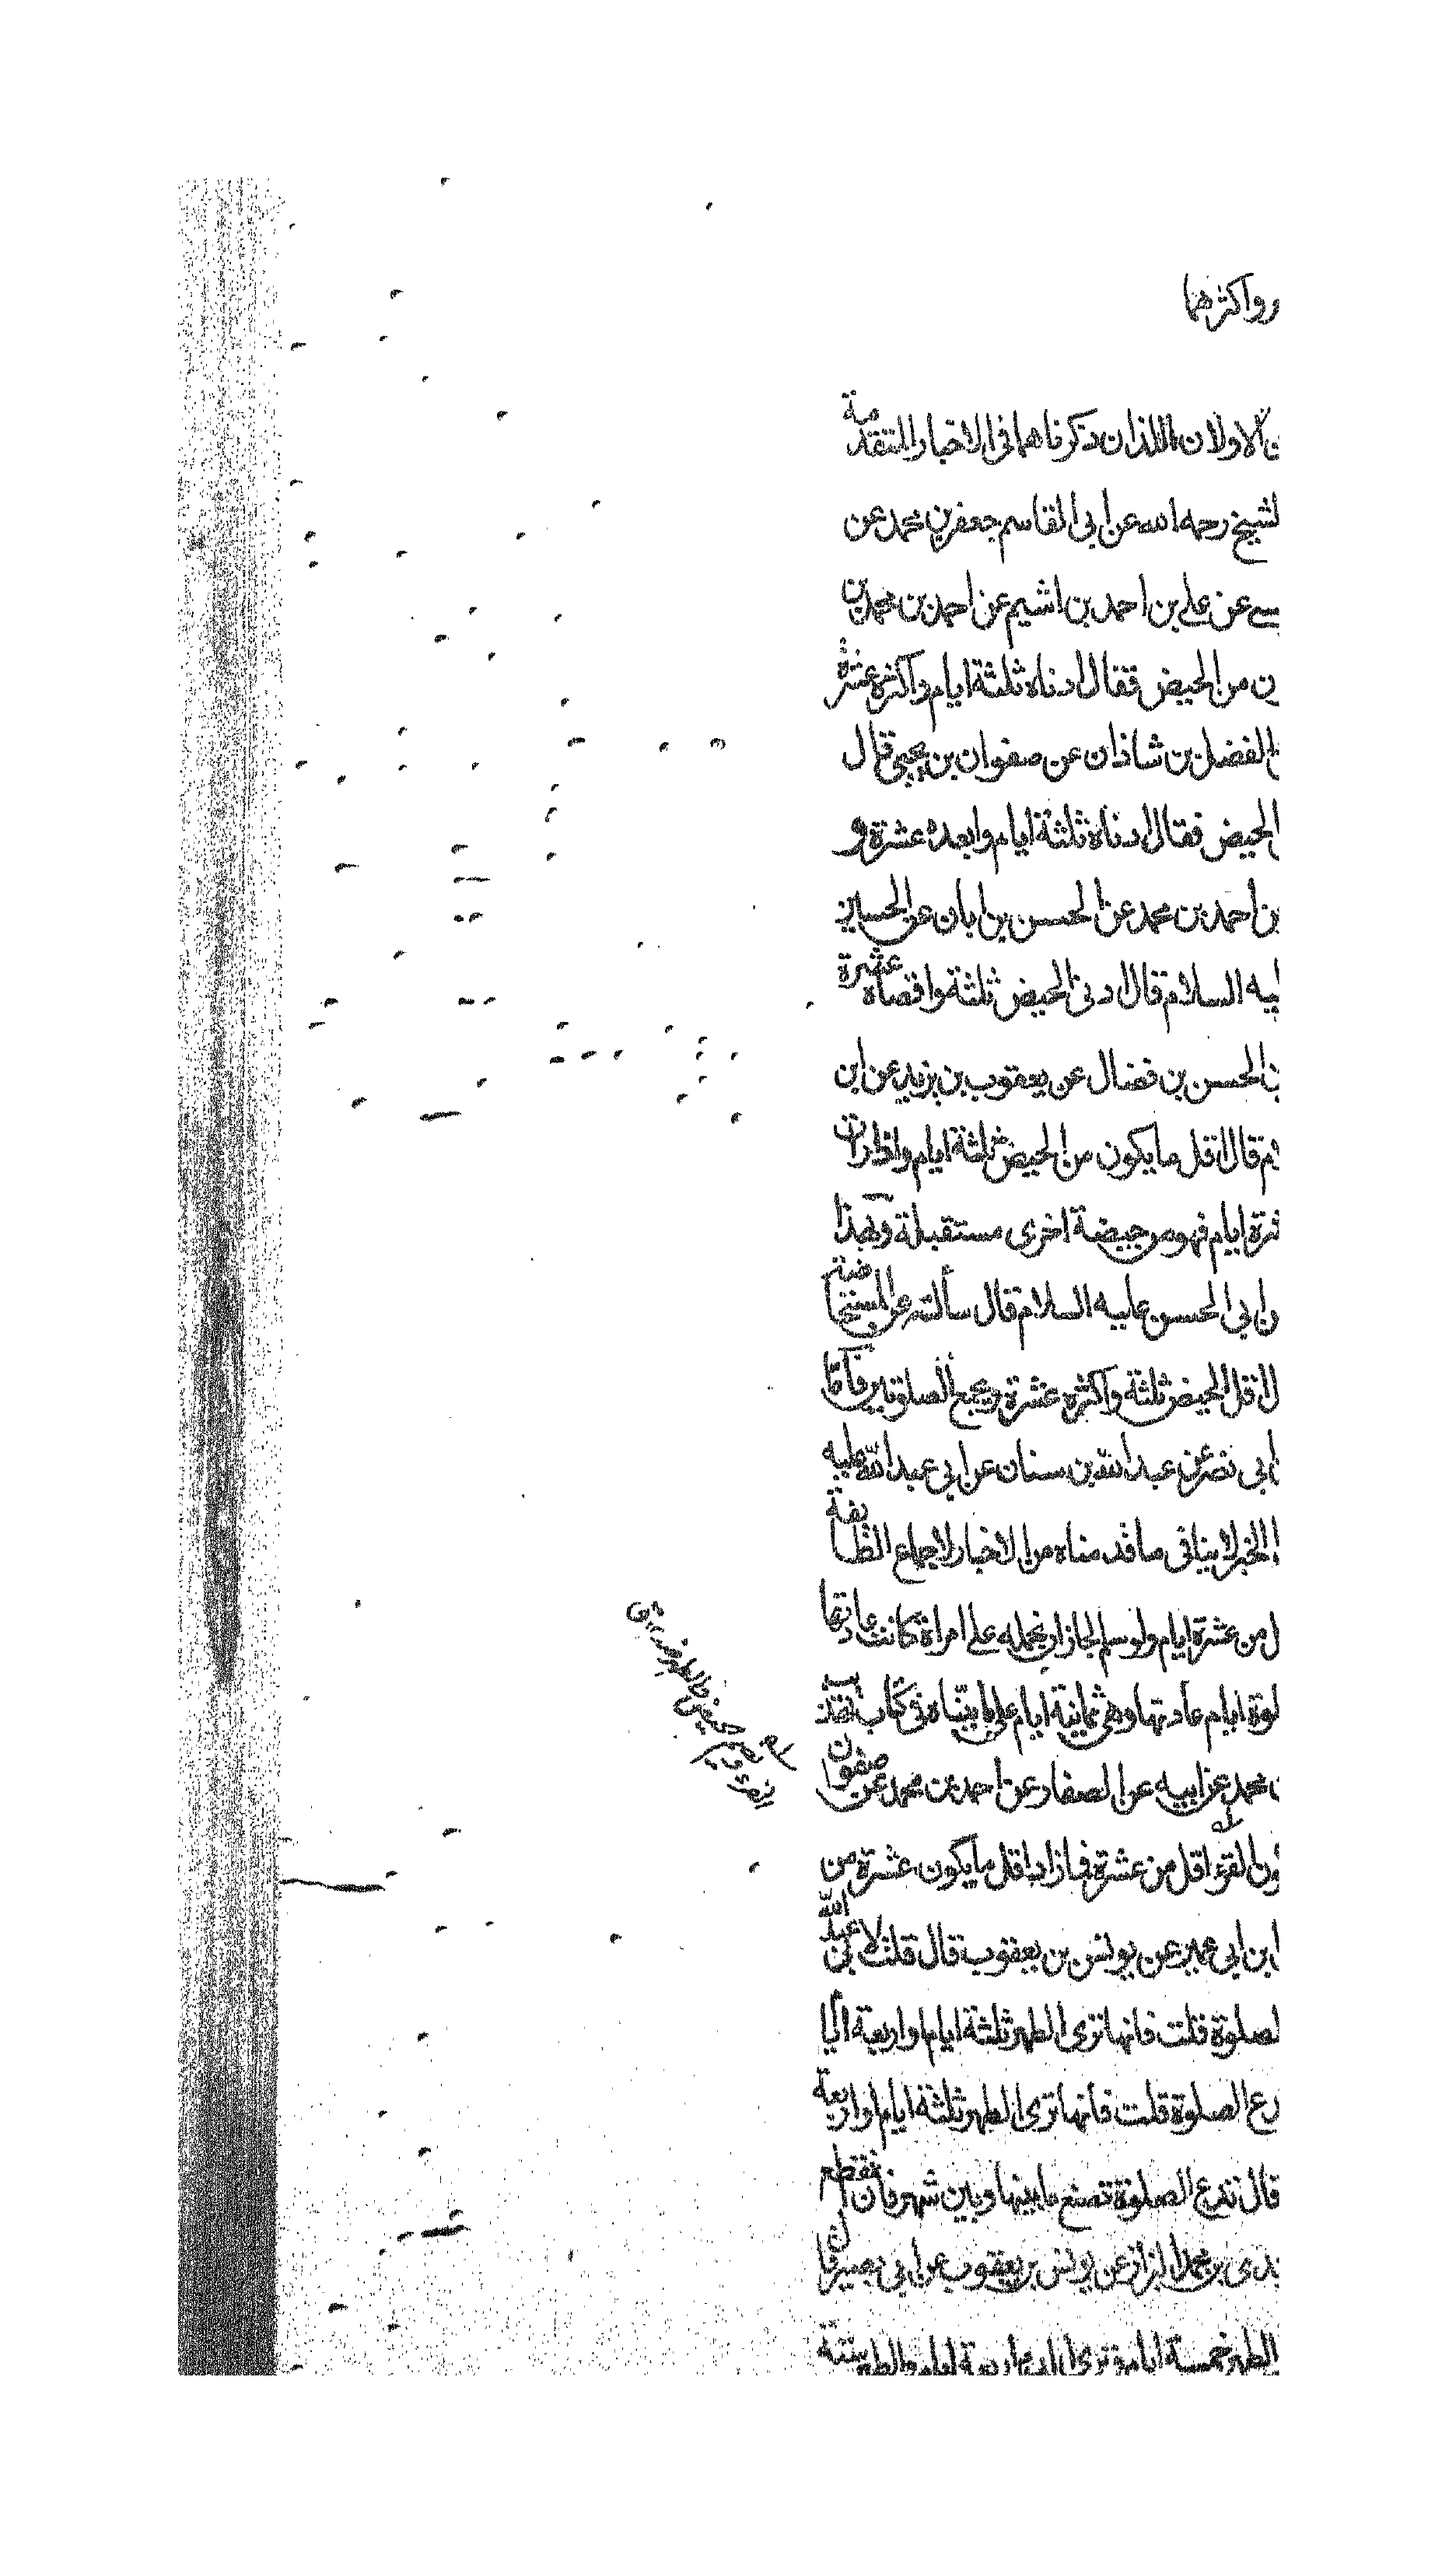 رواكثرهما
الاولان اللذان ذكرناهما فى الاخبار المتقدمة
لشيخ رحمه الله عن ابى القاسم جعفر بن محمد عن
عن على بن احمد بن اشيم عن احمد بن محمد بن
من الحيض فقال ادناه ثلثة ايام واكثره عشرة
الفضل بن شاذان عن صفوان بن يحيى قال
الحيض فقال ادناه ثلثة ايام وابعده عشرة و
بن احمد بن محمد عن الحسن بن ابان عن الحسين
ليه السلام قال ادنى الحيض ثلثة واقصاه عشرة
الحسن بن فضال عن يعقوب بن يزيد عن ابن
قال اقل ما يكون من الحيض ثلثة ايام واذا رات
شرة ايام فهو من حيضة اخرى مستقبلة وبهذا
ن ابى الحسن عليه السلام قال سألته عن المستحاضة
ال اقل الحيض ثلثة واكثره عشرة ويجمع الصلوتين فأما
ابى نصر عن عبد الله بن سنان عن ابى عبد الله عليه
الخبر لا ينافى ما قدمناه من الاخبار لاجماع الطائفة
ل من عشرة ايام ولو سلم لجاز ان نحمله على امراة كانت عادتها
لوة ايام عادتها وهى ثمانية ايام على ما بيناه فى كتاب
محمد عن ابيه عن الصفار عن احمد بن محمد عن صفون
ون القرء اقل من عشرة فما زاد اقل ما يكون عشرة من
ابن ابى عمير عن يونس بن يعقوب قال قلت لابى عبد الله
لصلوة قلت فانها ترى الطهر ثلثة ايام او اربعة ايا
دع الصلوة قلت فانها ترى الطهر ثلثة ايام او اربعة
قال تدع الصلوة تصنع ما بينها وبين شهر فان انقطع
ندى بن محمد البزاز عن يونس بن يعقوب عن ابى بصير قال
الطهر خمسة ايام وترى الدم اربعة ايام والطهر ستة